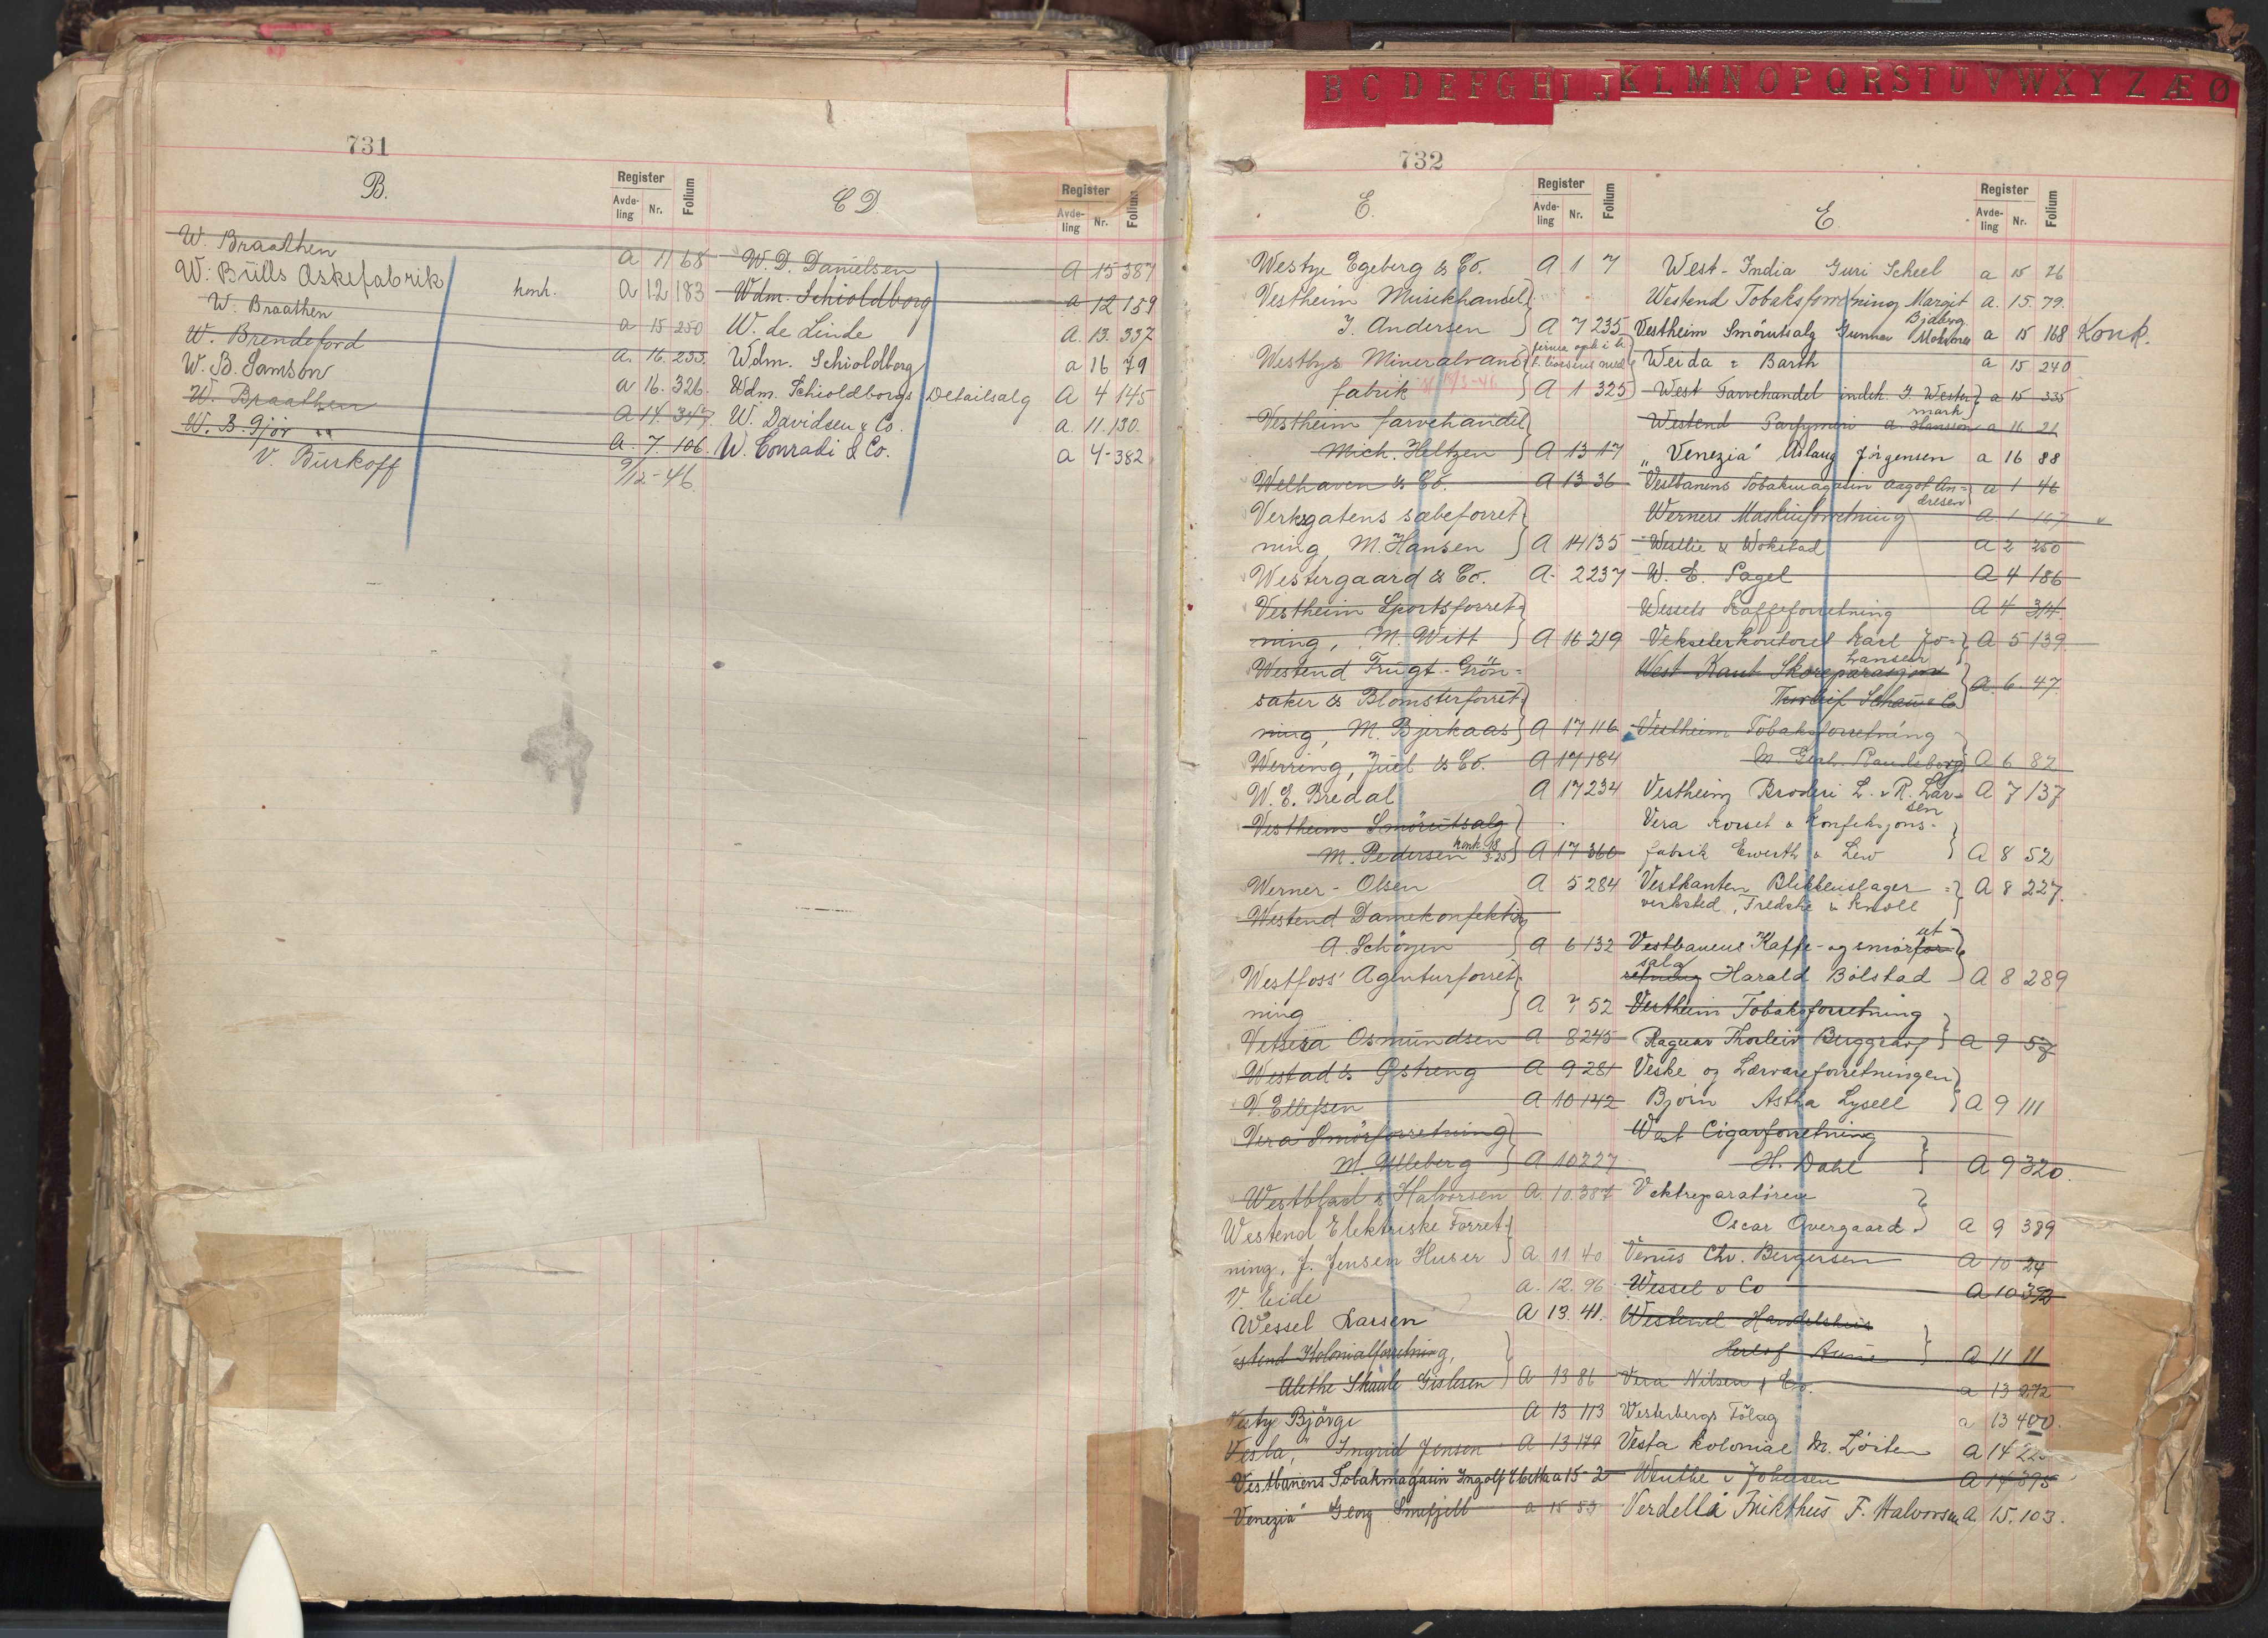 731
B.
Register
Avde-
ling
Nr.
Folium
W. Braathen a 11 68
W. Bülls Oskefabrik konk. a 12 183
W. Braathen a 15 250
W. Brendeford a. 16. 233.
W. B. Samson a 16. 326.
W. Braathen a 14. 347.
W. B. Gjör a. 7. 106.
V. Burkoff 9/12-46.
C D
Register
Avde-
ling
Nr.
Folium
W. D. Danielsen a 15 387
Wdm. Schioldborg a 12 159
W. de Linde a. 13. 337
Wdm. Schioldborg a 16 79
Wdm. Schioldborgs Detailsalg a 4 145
W. Davidsen & Co. a. 11. 130.
W. Conradi & Co. a 4-382
B C D E F G H I J K L M N O P Q R S T U V W X Y Z Æ Ø
732
E.
Register
Avde-
ling
Nr.
Folium
Westye Egeberg & Co. A 1 7
Vestheim Musikhandel
J. Andersen A 7 235
Westbys Mineralvand
fabrik A 1 325
Vestheim farvehandel
Mich. Heltzen A 13 17
Welhaven & Co. A 13 36
Verksgatens sæbeforret
ning, M. Hansen A 14 135
Westergaard & Co. A 2 237
Vestheim Sportsforret
ning, M. Witt A 16 219
Westend Frugt- Grön-
saker & Blomsterforret
ning, M. Bjerkaas A 17 116
Werring, Juel & Co. A 17 184
W. E. Bredal A 17 234
Vestheim Smörutsalg
M. Pedersen A 17 360
Werner-Olsen A 5 284
Westend Damekonfektion
A. Schöyen A 6 132
Westfoss' Agenturforret
ning A 7 52
Vetsera Osmundsen A 8 245
Westad & Østreng A 9 281
V. Ellefsen A 10 142
Vera Smörforretning
M. Ulleberg A 10 227
Westblad & Halvorsen A. 10. 387
Westend Elektriske Forret
ning, J. Jensen Huser a 11. 40
V. Eide a. 12. 96
Wessel Larsen A 13. 41.
estend Kolonialforretning,
Alethe Skaale Gislesen A 13 86
Vesty Bjövge A 13 113
Vesla," Ingrid Jensen A 13 179
Vestbanens Tobakmagasin Ingolf a 15-2
Venezia" Georg Smefjell a 15 53
E
Register
Avde-
ling
Nr.
Folium
West-India Guri Scheel a 15 76
Westend Tobaksforretning Margit a. 15. 79.
Vestheim Smörutsalg Gunnar a 15 168 Konk.
Weida & Barth a 15 240
West Farvehandel indeh. J. Wester
mark a 15 335
Westend Parfymeri a Hansson a 16 21
"Venezia" Aslaug Jörgensen a 16 88
Vestbanens Tobakmagasin Aagot An-
dresen a 1 46
Werners Maskinforretning A. 1 167
Westlie & Wokstad A 2 250
W. E. Pagel A 4 186
Wessels Kaffeforretning A 4 314.
Vekselerkontoret Karl Jo-
hansen A 5 139.
West Kant Skoreparasjon
Thorleif Schau & Co A. 6. 47.
Vestheim Tobaksforretning
M. Gerh. Randsborg A 6 82
Vestheim Broderi L. & R. Lar-
sen A 7 137
Vera Korset & Konfeksjons-
fabrik Ewerth & Lew A 8 52
Vestkanten Blikkenslager-
verksted, Fredske & Knoll A 8 227.
Vestbanens Kaffe- og smörfor
ut
salg
retning Harald Bölstad A 8 289
Vestheim Tobaksforretning
Ragnar Thorleiv Berggrav A 9 57
Veske og Lærvareforretningen
Björn Astha Lysell A 9 111
West Cigarforretning
H. Dahl A 9 320.
Vektreparatören
Oscar Overgaard A 9 389
Venus Chr. Bergersen A 10 24
Wessel & Co A 10 392
Westend Handelshus
Herlof Aune A 11 11
Vera Nilsen & Co. a 13 272
Westerbergs Tölag a 13 400.
Vesta kolonial M. Löiten A 14 22
Wenthe & Johnsen A 14 395
Verdella Frukthus F. Halvorsen A. 15. 103.